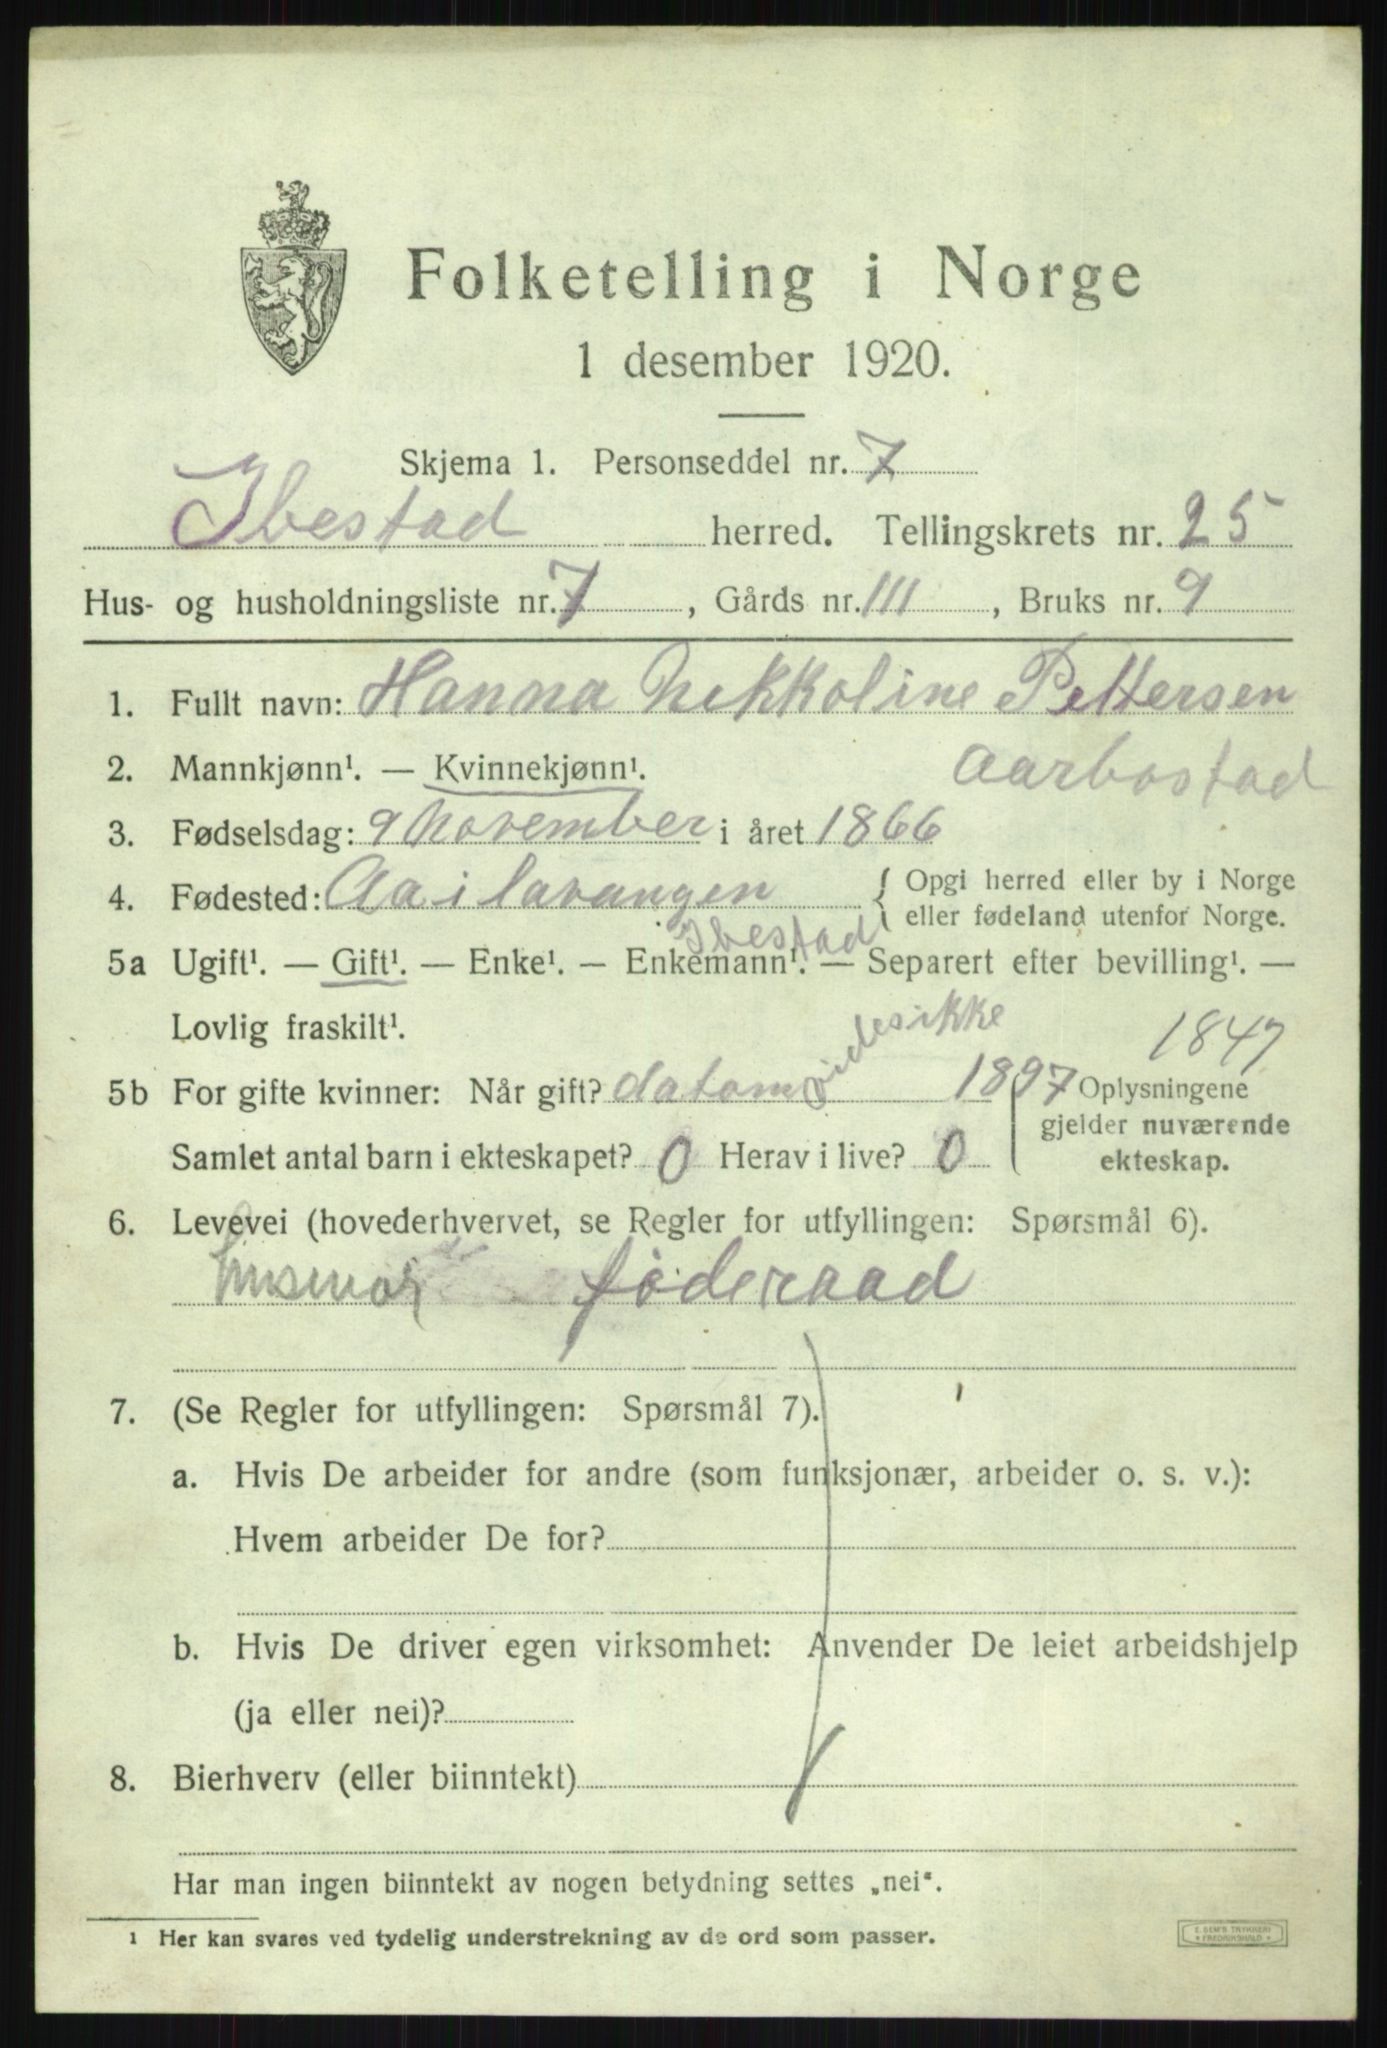 Folketelling i Norge
1 desember 1920.
Skjema 1. Personseddel nr. 7
Ibestad herred. Tellingskrets nr. 25
Hus- og husholdningsliste nr. 7, Gårds nr. 111, Bruks nr. 9
1. Fullt navn: Hanna Nekkoline Pettersen
2. Mannkjønn¹. — Kvinnekjønn¹. Aarbostad
3. Fødselsdag: 9 November i året 1866
4. Fødested: Aa i lavangen { Opgi herred eller by i Norge
eller fødeland utenfor Norge.
Ibestad
5a Ugift¹. — Gift¹. — Enke¹. — Enkemann¹. — Separert efter bevilling¹. —
Lovlig fraskilt¹.
1847
5b For gifte kvinner: Når gift? datom videsikke 1897 Oplysningene
gjelder nuværende
Samlet antal barn i ekteskapet? 0 Herav i live? 0 ekteskap.
6. Levevei (hovederhvervet, se Regler for utfyllingen: Spørsmål 6).
Husmor føderaad
7. (Se Regler for utfyllingen: Spørsmål 7).
a. Hvis De arbeider for andre (som funksjonær, arbeider o. s. v.):
Hvem arbeider De for?
b. Hvis De driver egen virksomhet: Anvender De leiet arbeidshjelp
(ja eller nei)?
8. Bierhverv (eller biinntekt)
Har man ingen biinntekt av nogen betydning settes „nei".
1 Her kan svares ved tydelig understrekning av de ord som passer.
E. SEM'S TRYKKERI
FREDRIKSHALD